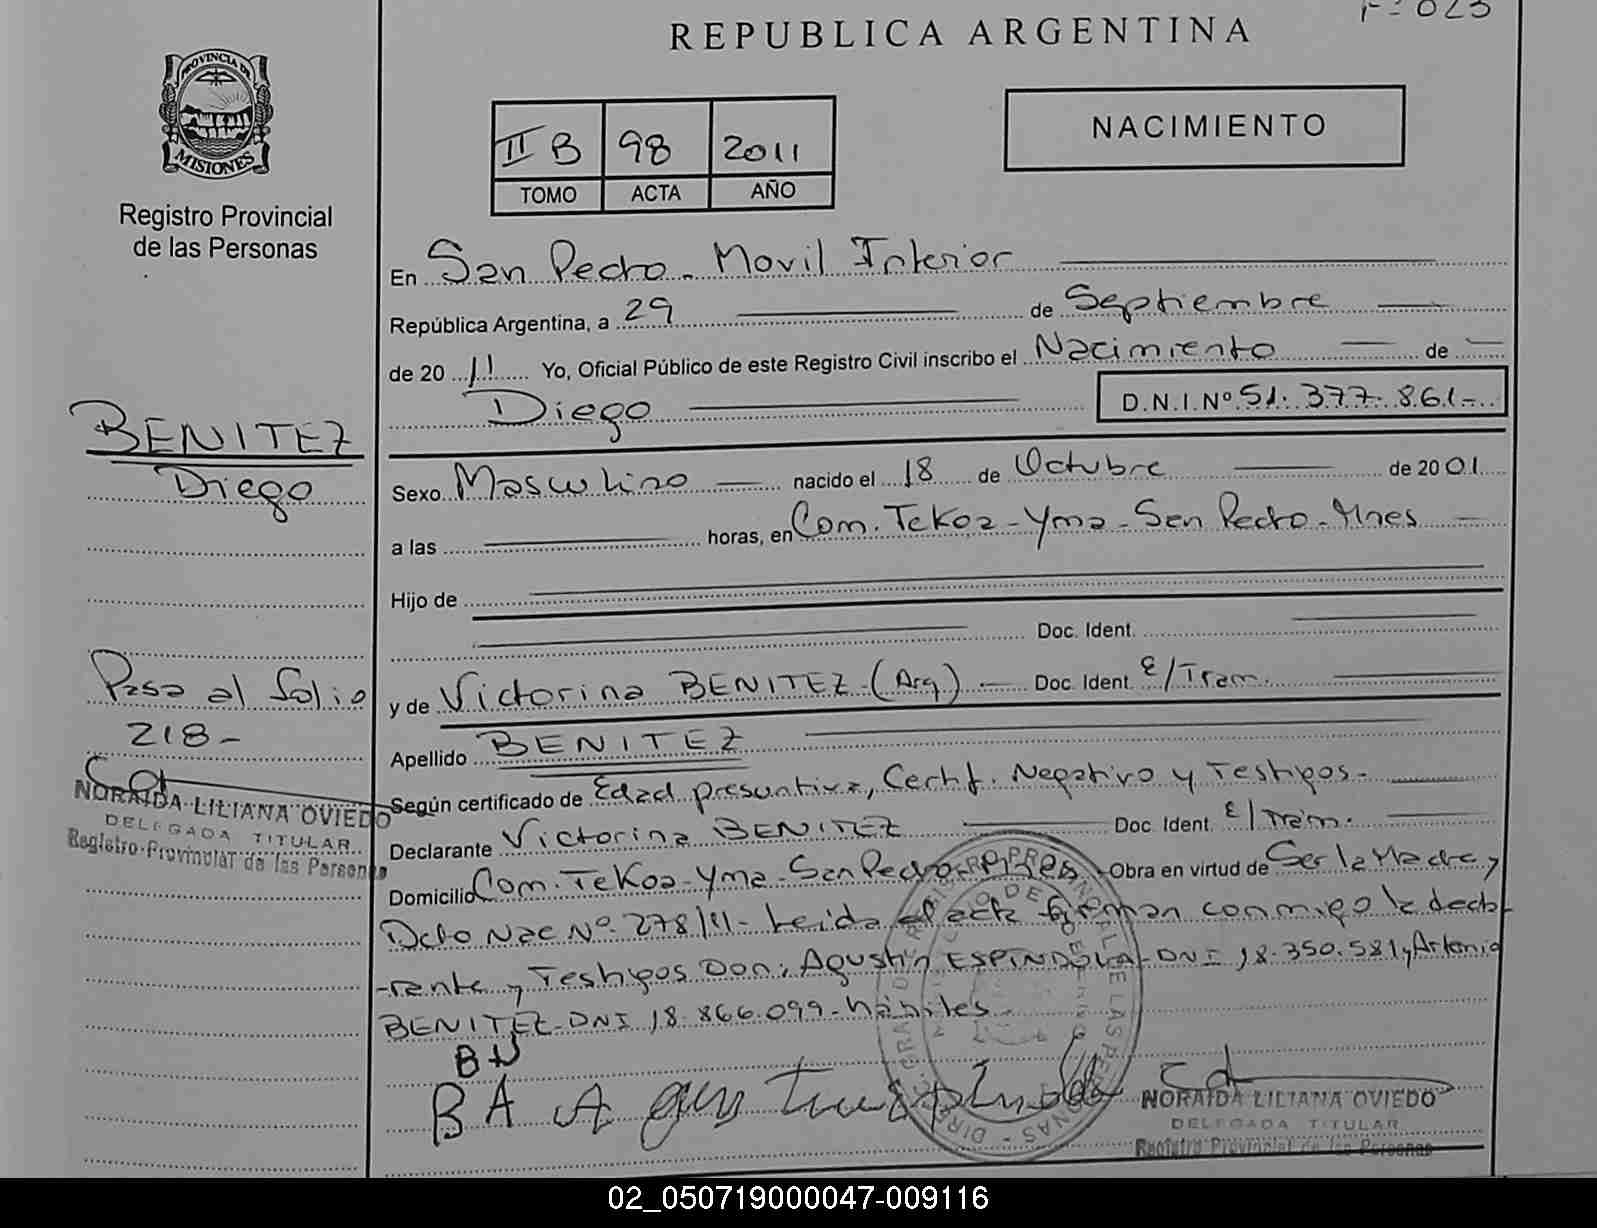 REPUBLICA ARGENTINA
F= 023
PROVINCIA DE
MISIONES
Registro Provincial
de las Personas
II B 98 2011
TOMO ACTA AÑO
NACIMIENTO
En San Pedro - Movil Interior
República Argentina, a 29 de Septiembre
de 20 11 Yo, Oficial Público de este Registro Civil inscribo el Nacimiento de
Diego D.N.I.Nº 51.377.861-
BENITEZ
Diego
Sexo Masculino nacido el 18 de Octubre de 20 01
a las horas, en Com. TeKoa-Yma-San Pedro-Mnes
Hijo de
Doc. Ident.
y de Victorina BENITEZ-(Arg)- Doc. Ident. E/Tram.
Pasa al folio
218-
Apellido BENITEZ
Según certificado de Edad presuntiva, Certif. Negativo y Testigos-
NORAIDA LILIANA OVIEDO
DELEGADA TITULAR
Registro Provincial de las Personas
Declarante Victorina BENITEZ Doc. Ident. E/Tram.
Domicilio Com. TeKoa-Yma-San Pedro- Obra en virtud de Ser la Madre y
Dcto Nac Nº 278/11- Leida el acta firman conmigo la decla-
-rante y Testigos Don: Agustin ESPINDOLA-DNI 18.350.581 y Antonio
BENITEZ-DNI 18.866.099-hábiles
BN
BA
NORAIDA LILIANA OVIEDO
DELEGADA TITULAR
Registro Provincial de las Personas
02_050719000047-009116